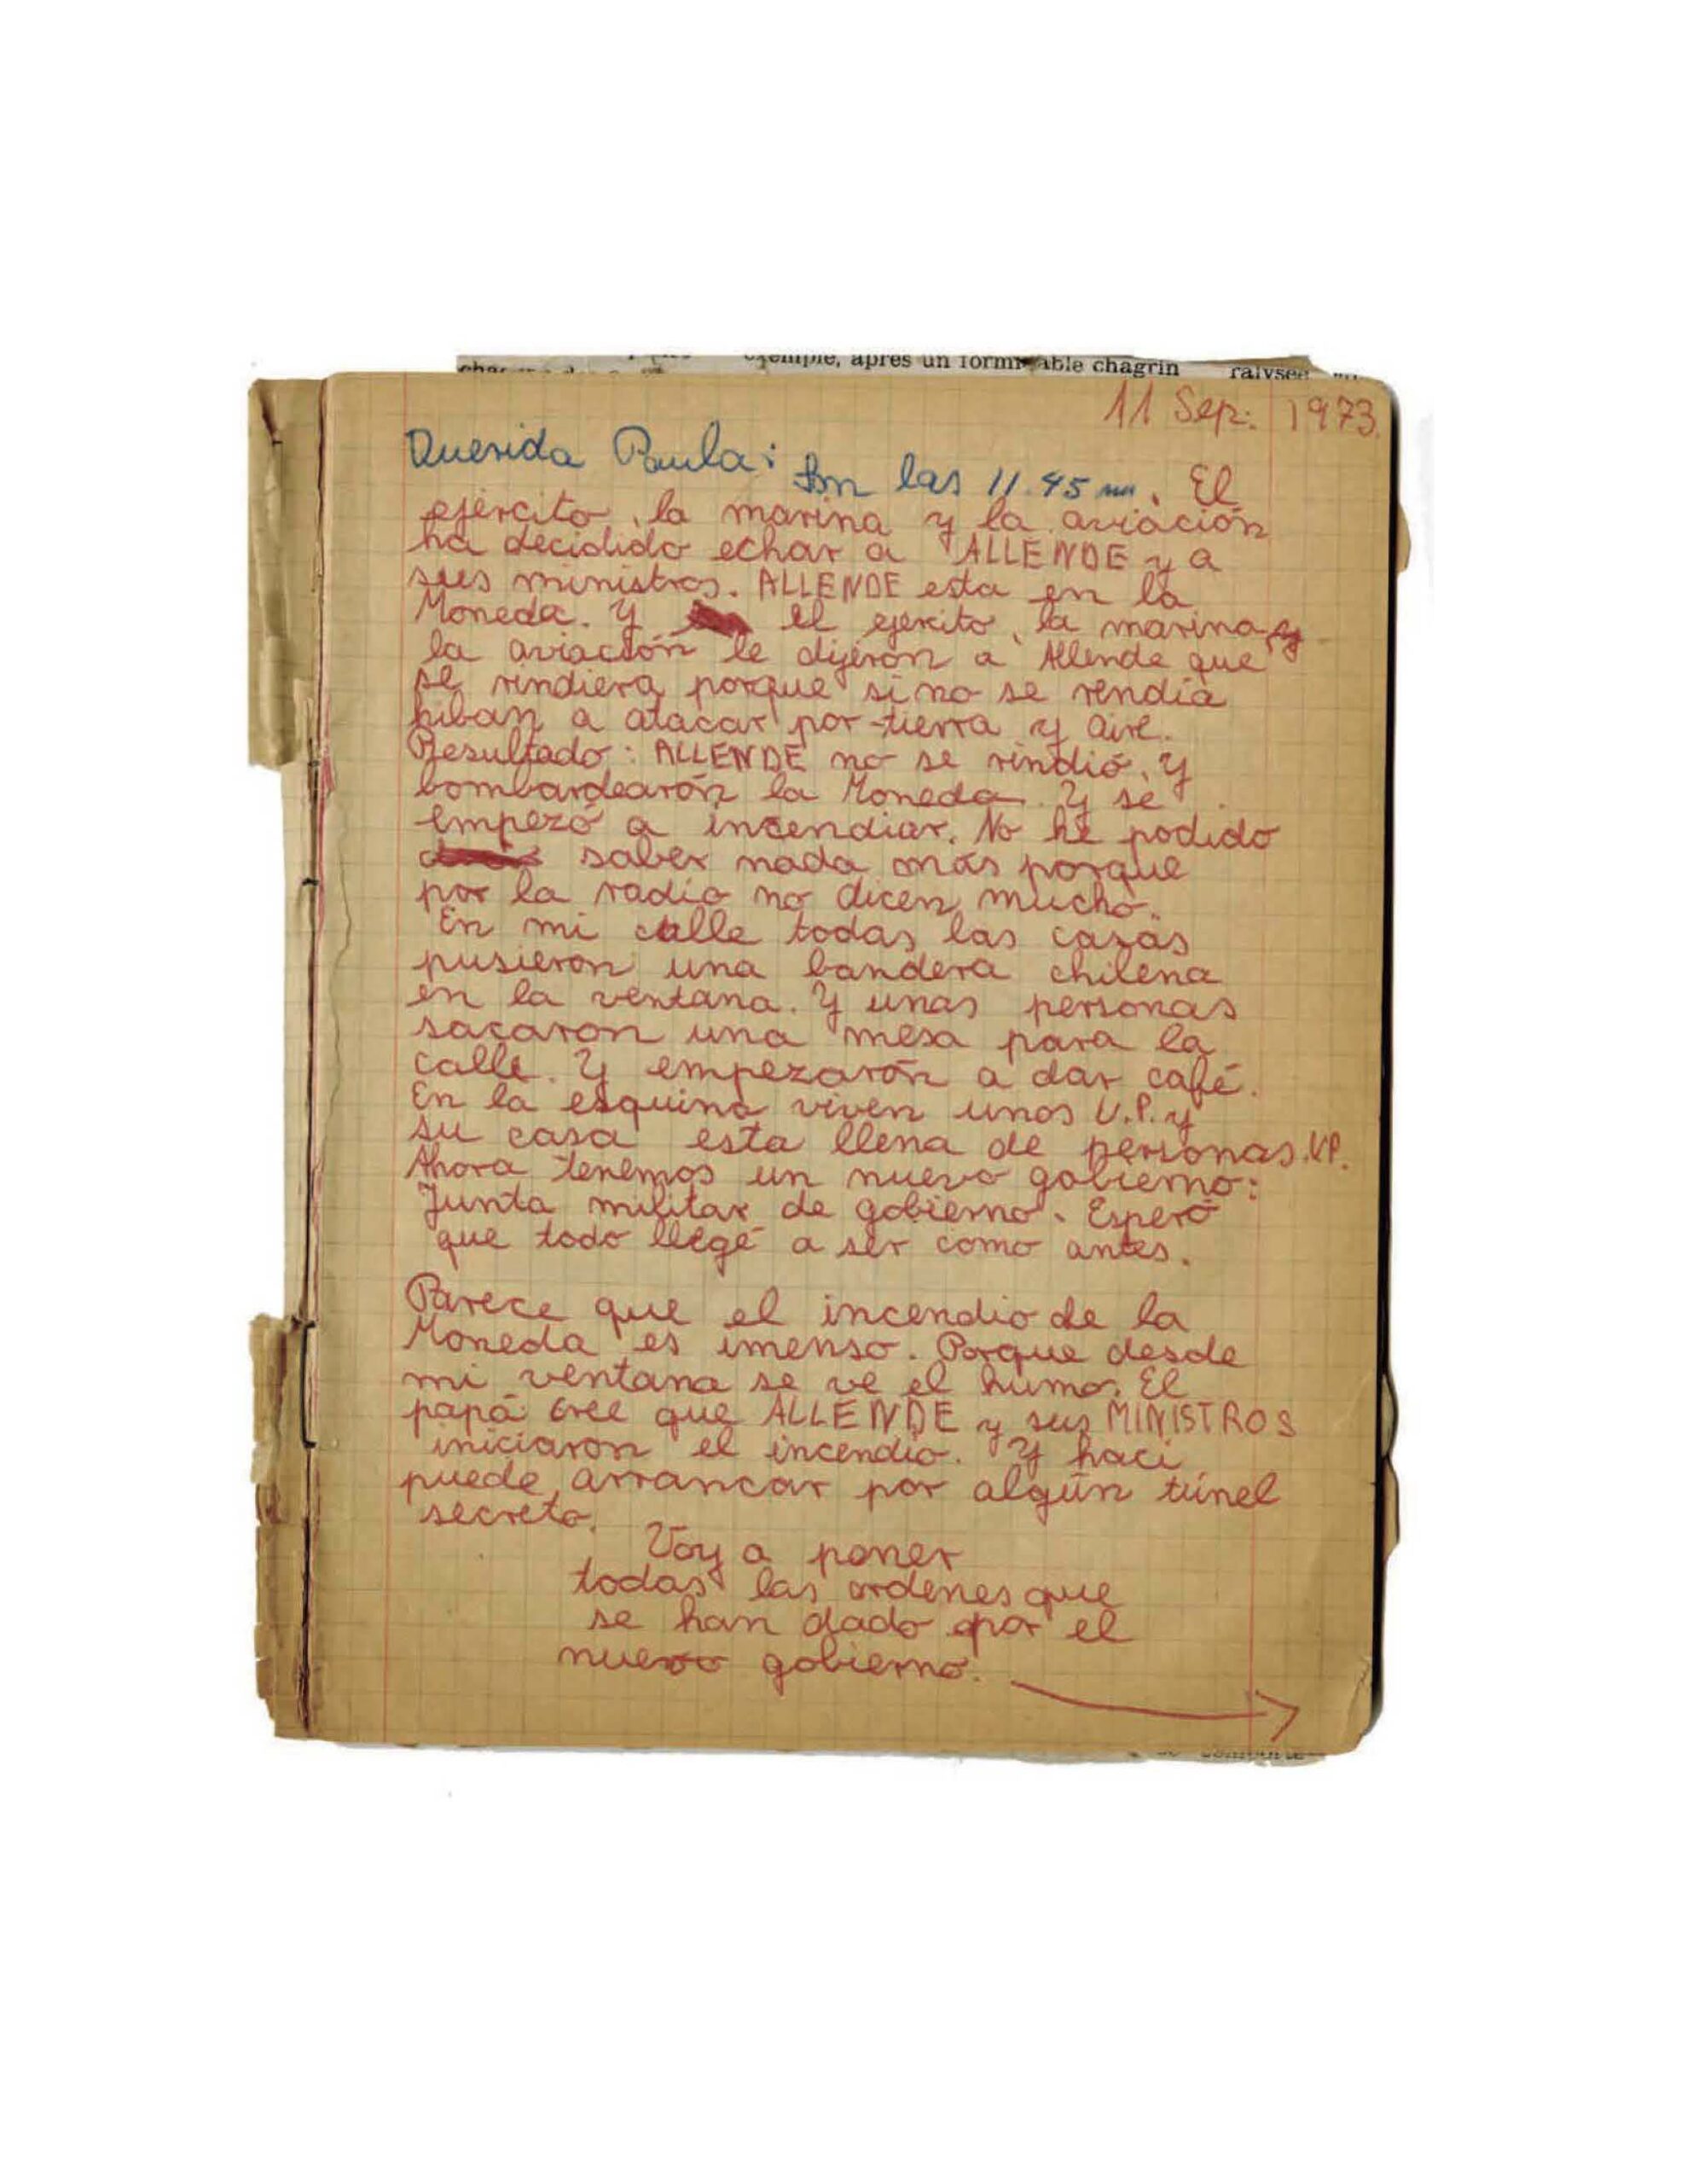 exemple, après un formidable chagrin
11 Sep: 1973.
Querida Paula: Son las 11.45 . El
ejército, la marina y la aviación
ha decidido echar a ALLENDE y a
sus ministros. ALLENDE esta en la
Moneda. Y el ejercito, la marina y
la aviación le dijerón a Allende que
se rindiera porque si no se rendia
hiban a atacar por tierra y aire.
Resultado: ALLENDE no se rindió. Y
bombardearón la Moneda. Y se
empezó a incendiar. No he podido
saber nada más porque
por la radio no dicen mucho.
En mi calle todas las casas
pusieron una bandera chilena
en la ventana. Y unas personas
sacaron una mesa para la
calle. Y empezarón a dar café.
En la esquina viven unos U.P. y
su casa esta llena de personas U.P.
Ahora tenemos un nuevo gobierno:
Junta militar de gobierno. Esperó
que todo llegé a ser como antes.
Parece que el incendio de la
Moneda es imenso. Porque desde
mi ventana se ve el humo. El
papá cree que ALLENDE y sus MINISTROS
iniciaron el incendio. Y haci
puede arrancar por algún túnel
secreto.
Voy a poner
todas las ordenes que
se han dado por el
nuevo gobierno.